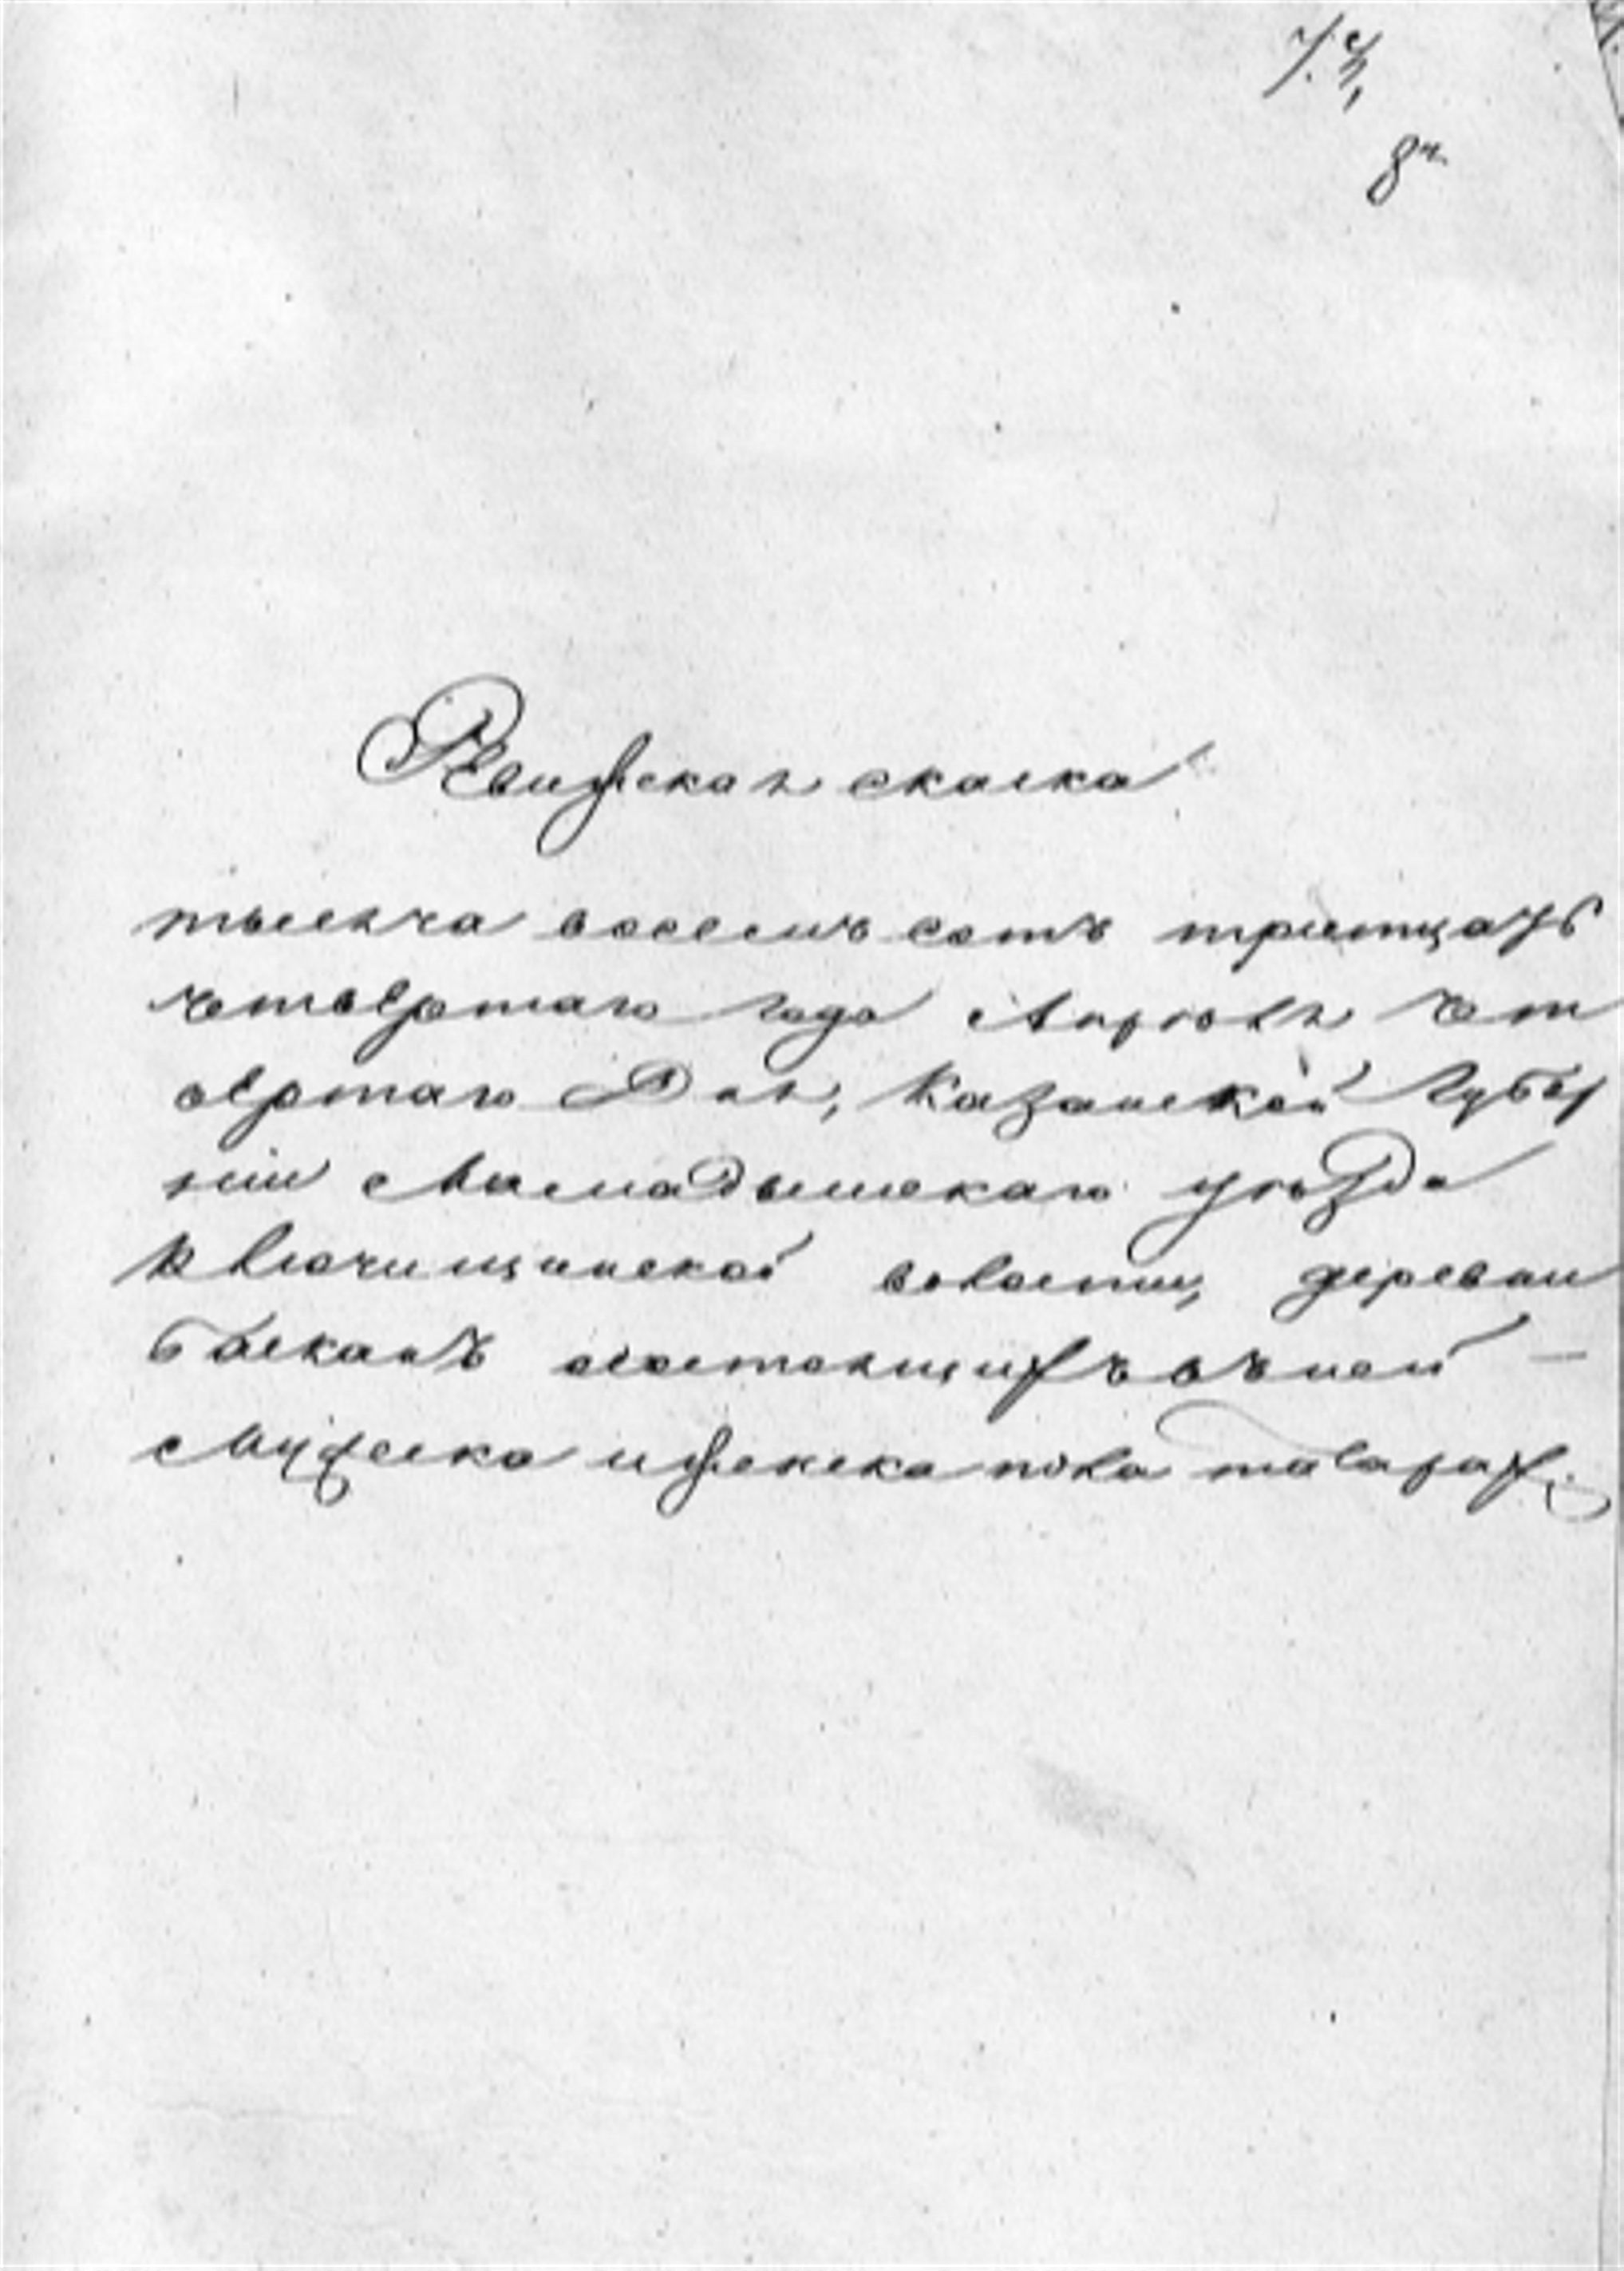 Ревижская скаска
тысяча восемь сотъ тритцать
четвертаго года Апреля чет
вертаго Дня, Казанской Губер
нии Мамадышскаго уѣзда
Ключищинской волости, деревни
состоящихъ въ ней
Мужеска и женска пола татарах.